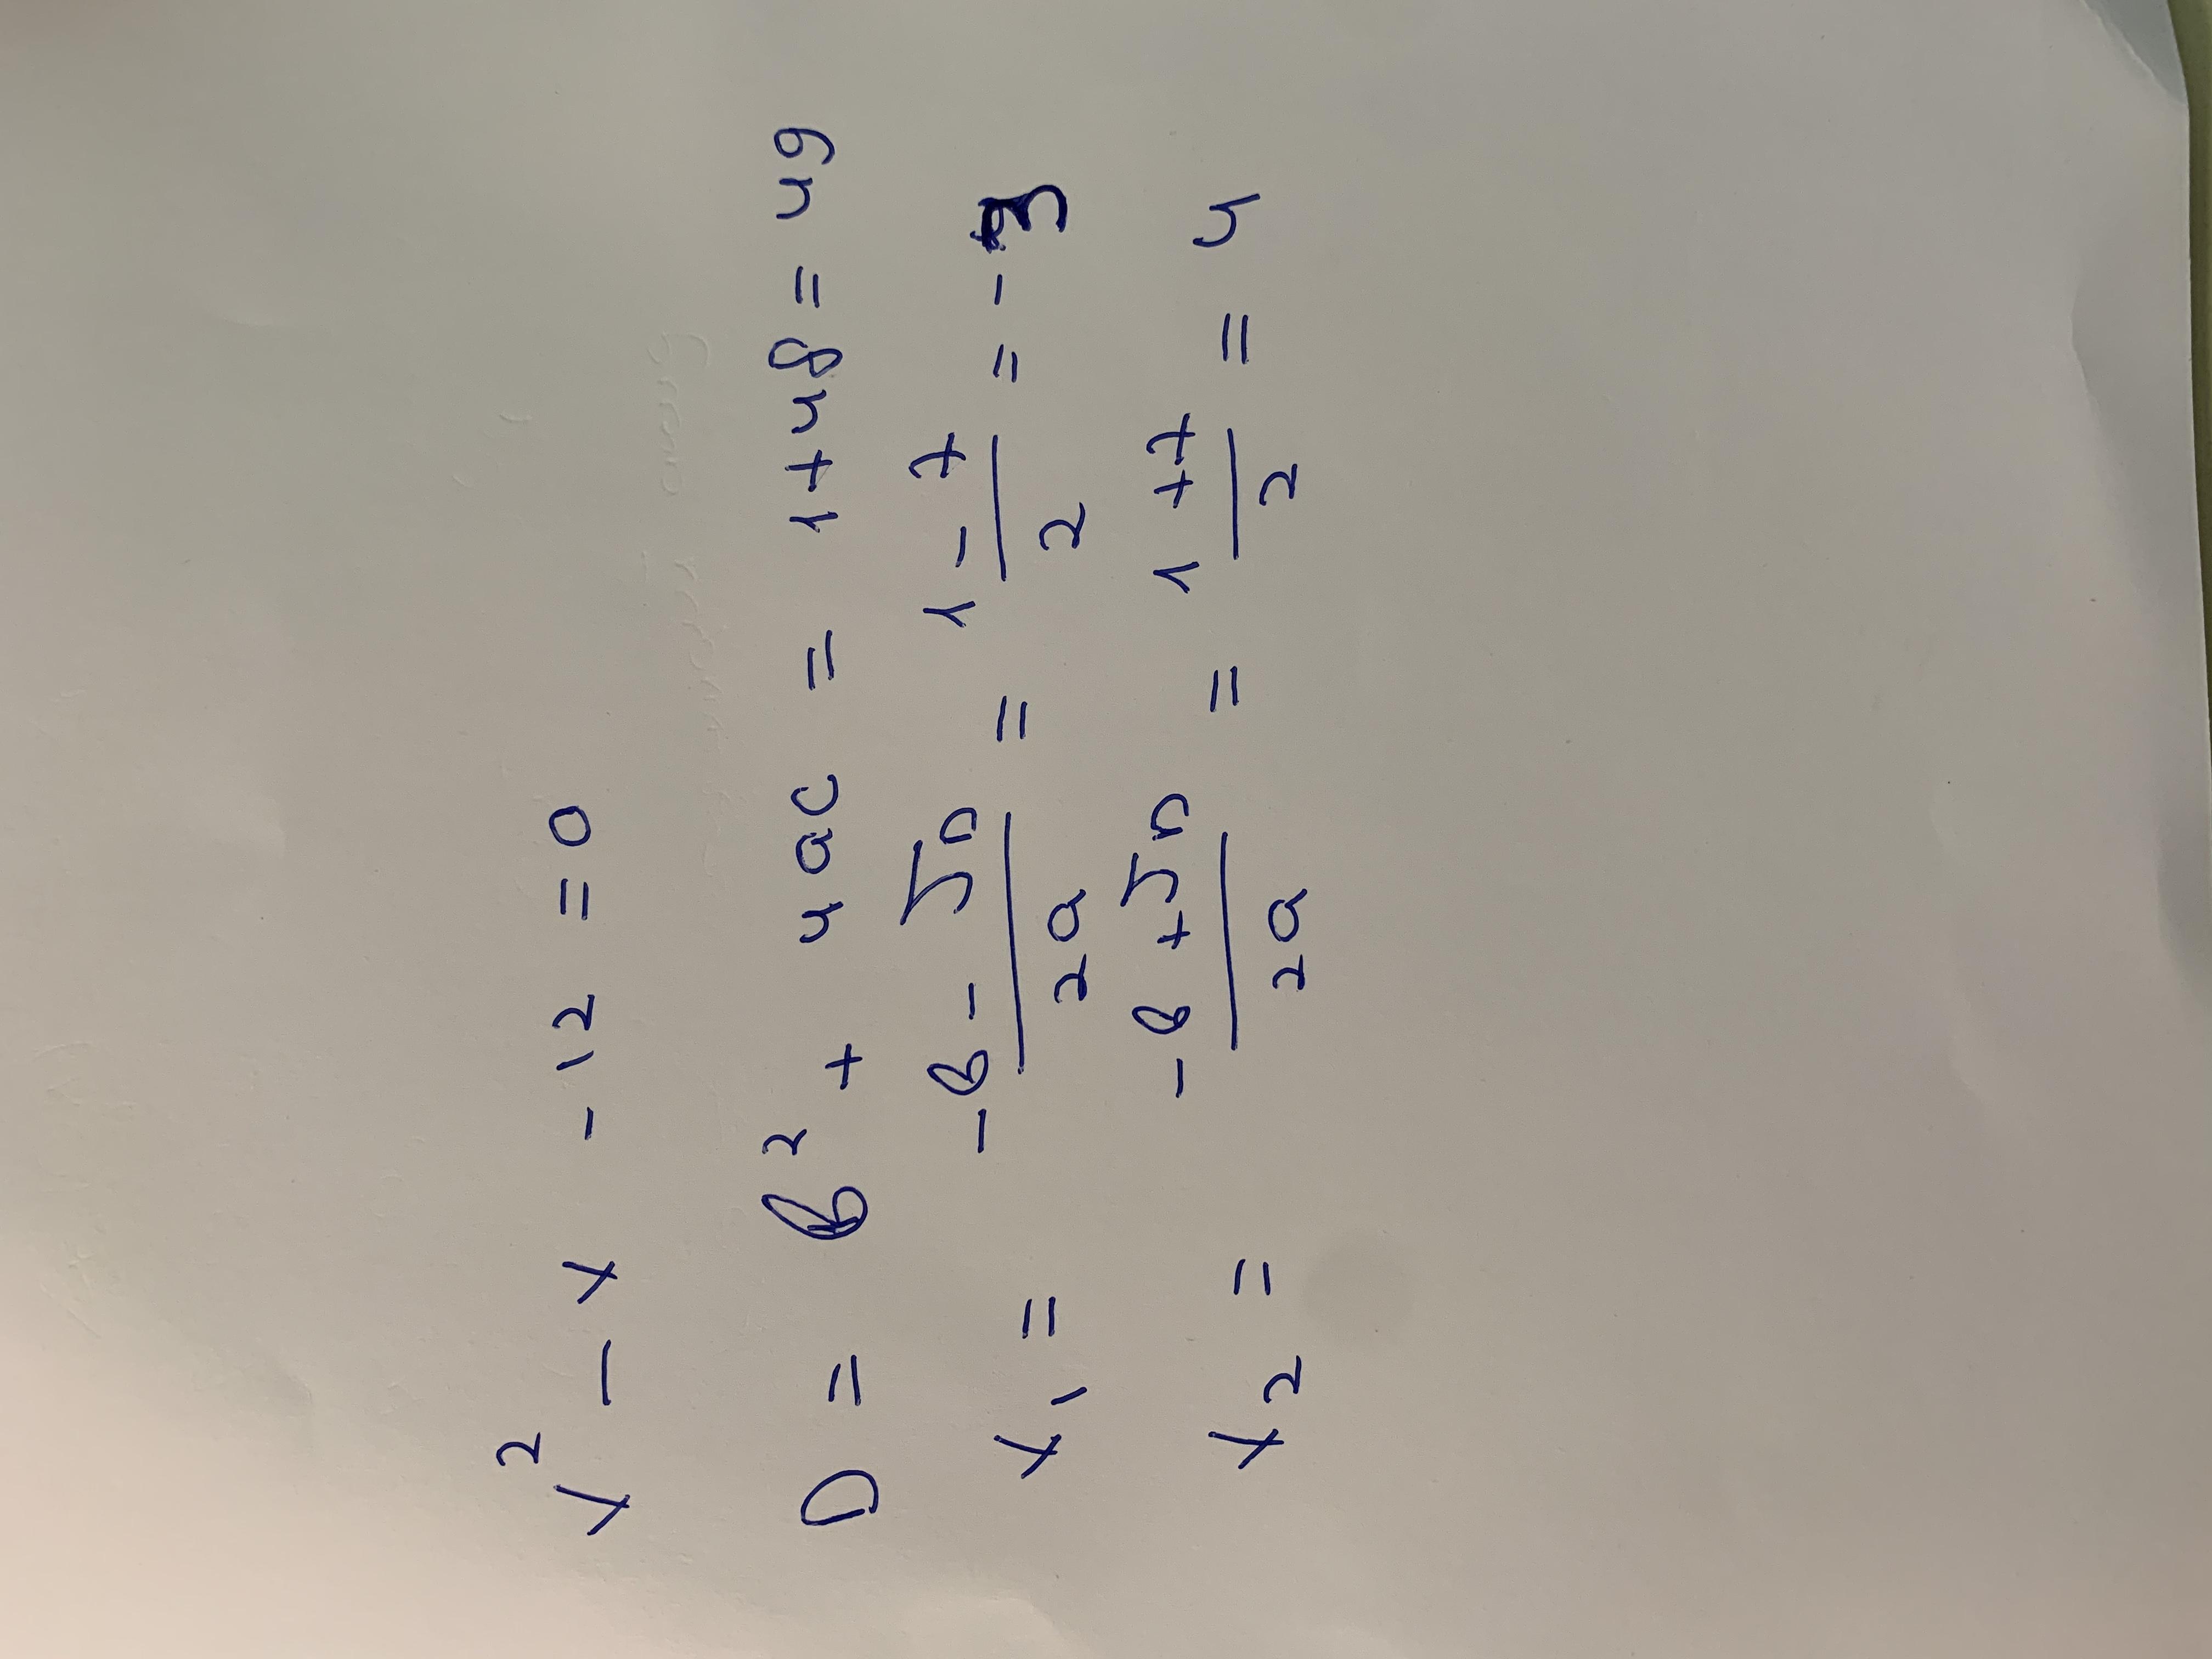 x² - x - 12 = 0
D = b² + 4ac = 1+48 = 49
x₁ = (-b - √D)/(2a) = (1 - 7)/2 = -3
x₂ = (-b + √D)/(2a) = (1 + 7)/2 = 4